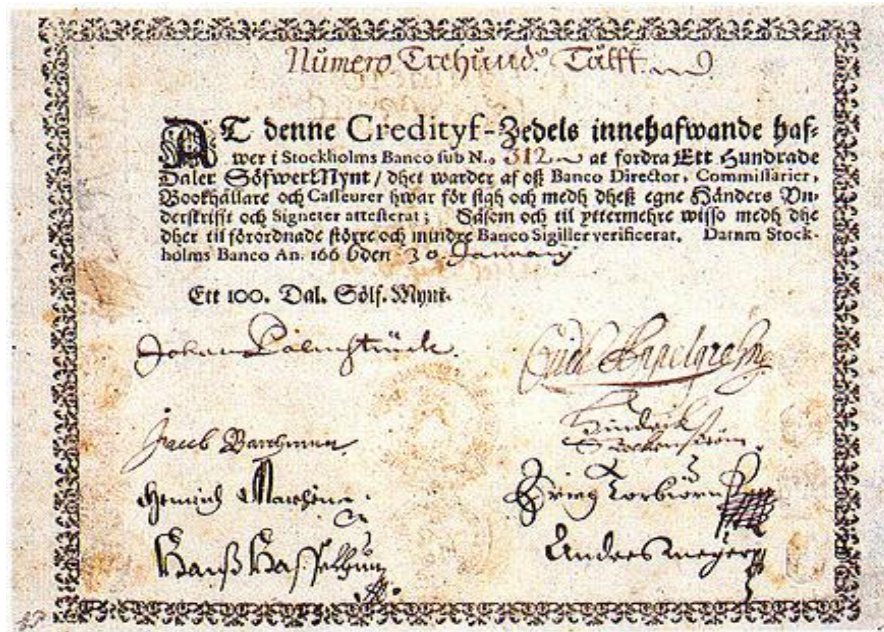 Numero Trehund. Tålff.
AT denne Credityf-Zedels innehafwande haf-
wer i Stockholms Banco sub N.o 312 at fordra Ett Hundrade
Daler SöfwerMynt / dhet warder af oß Banco Director, Commissarier,
Bookhållare och Casseurer hwar för sigh och medh dheß egne Händers Un-
derskrifft och Signeter attesterat; Såsom och til yttermehre wisso medh dhe
dher til förordnade större och mindre Banco Sigiller verificerat. Datum Stock-
holms Banco An. 1666 den 30. January
Ett 100. Dal. Sölf. Mynt.
Johan Palmstruck.
Jacob
Hindrick
Hinrich
Hanß
Anders Meyer